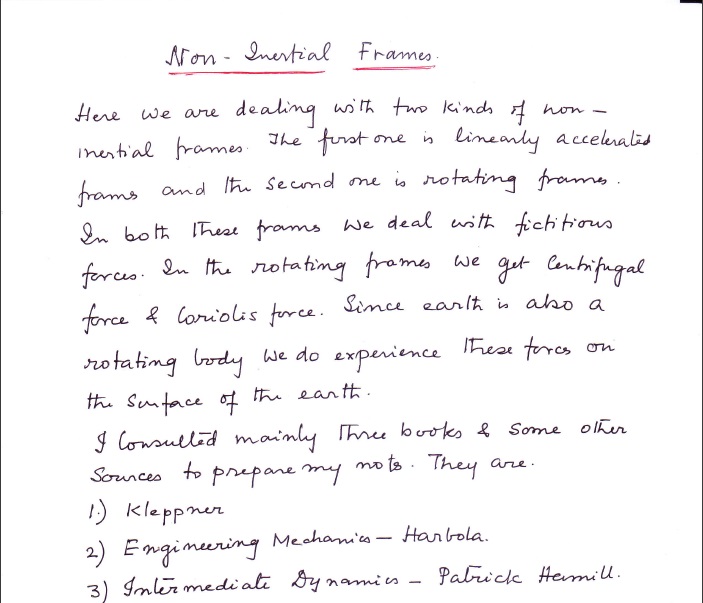 Non - Inertial Frames.
Here we are dealing with two kinds of non -
inertial frames. The first one is linearly accelerated
frams and the second one is rotating frames.
In both these frams we deal with fictitious
forces. In the rotating frames we get Centrifugal
force & Coriolis force. Since earth is also a
rotating body we do experience these forces on
the surface of the earth.
I Consulted mainly three books & some other
Sources to prepare my nots. They are.
1.) Kleppner
2) Engineering Mechanics - Harbola.
3) Intermediate Dynamics - Patrick Hamill.